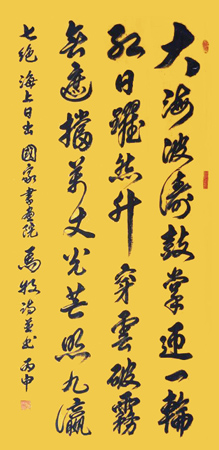 大海波涛鼓掌迎一轮
红日跃然升穿雲破霧
無遮擋万丈光芒照九瀛
七绝 海上日出 國家書画院 馬牧诗并书 丙申